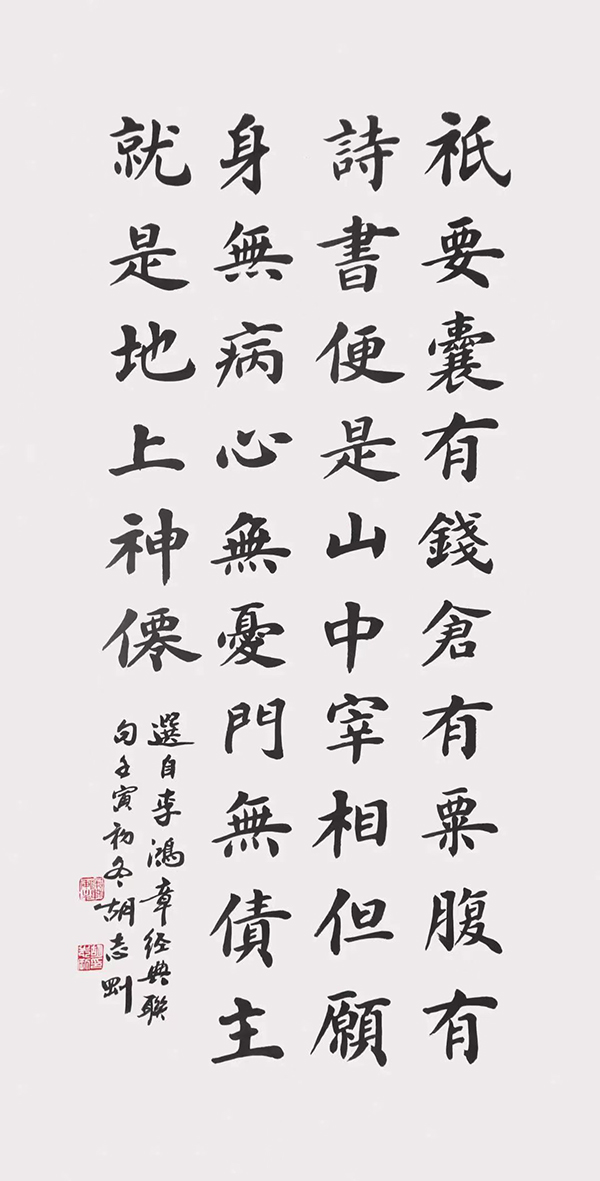 祇要囊有錢倉有粟腹有
詩書便是山中宰相但願
身無病心無憂門無債主
就是地上神僊
選自李鴻章經典聯
句壬寅初冬胡志剛